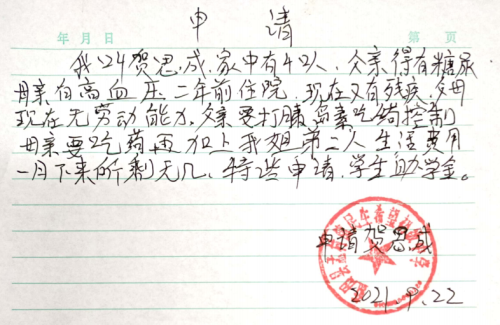 申 请
年 月 日 第 页
我叫贺思成,家中有4口人,父亲得有糖尿
母亲有高血压,二年前住院,现在又有残疾,父母
现在无劳动能力,父亲要打胰岛素吃药控制
母亲要吃药,再加上我姐弟二人生活费用
一月下来所剩无几,特此申请,学生助学金。
申请贺思成
2021.9.22